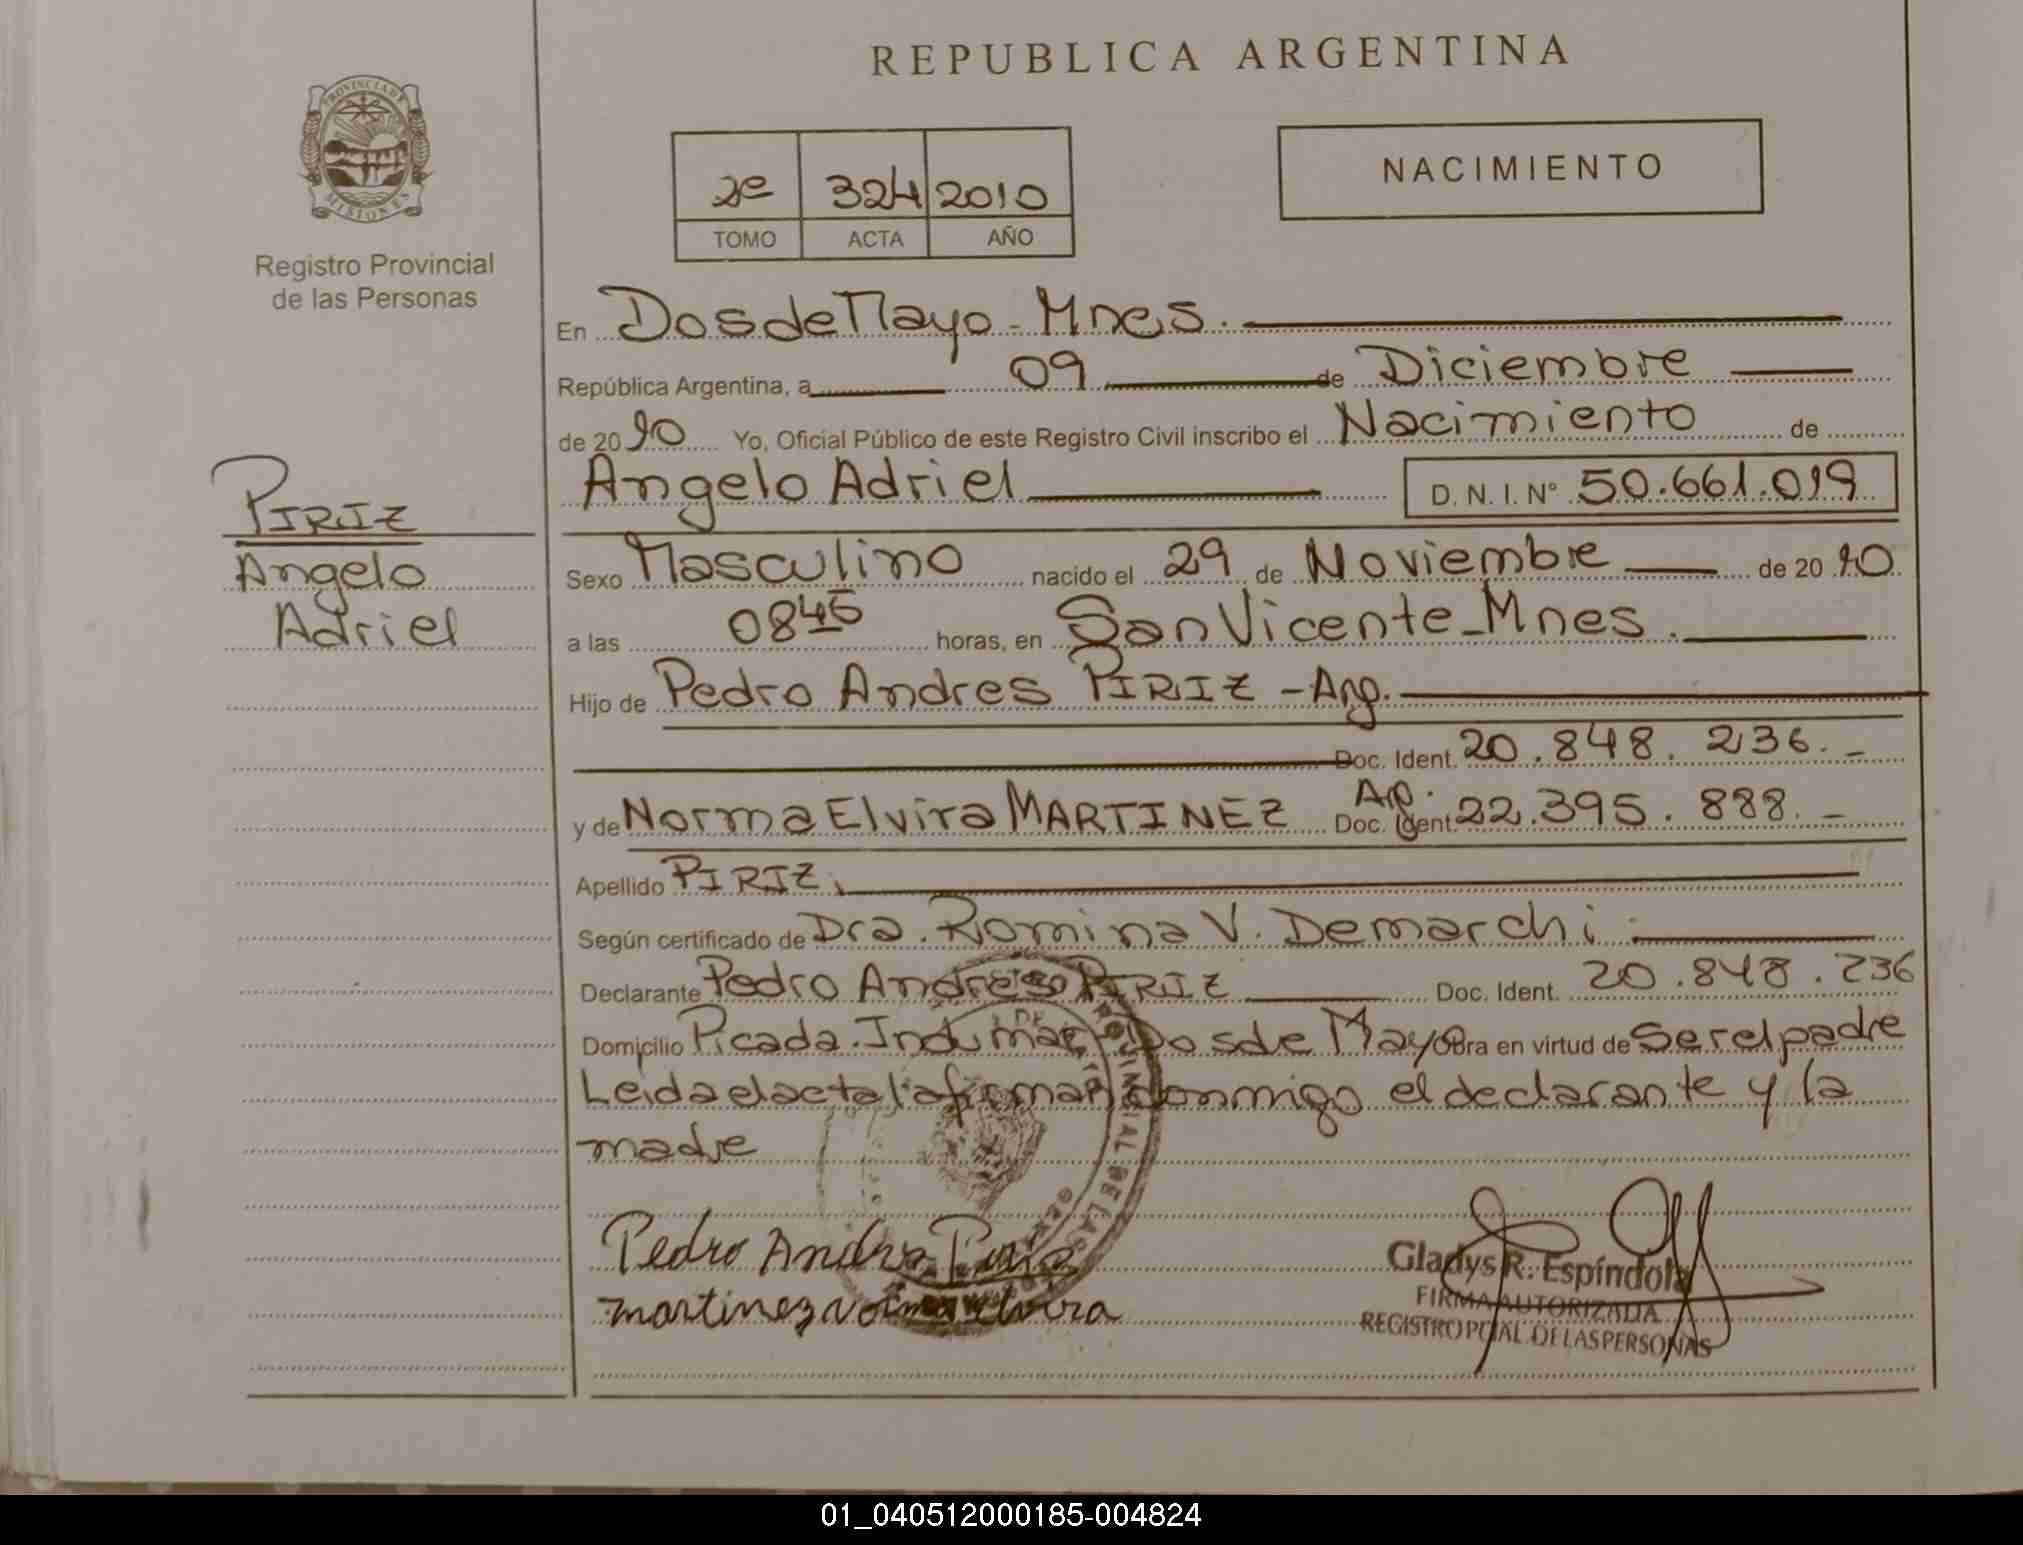 REPUBLICA ARGENTINA
PROVINCIA DE
MISIONES
Registro Provincial
de las Personas
2º 324 2010
TOMO ACTA AÑO
NACIMIENTO
En Dos de Mayo - Mnes.
República Argentina, a 09 de Diciembre
de 2010 Yo, Oficial Público de este Registro Civil inscribo el Nacimiento de
Angelo Adriel D. N. I. Nº 50.661.019
PIRIZ
Angelo
Adriel
Sexo Masculino nacido el 29 de Noviembre de 2010
a las 0845 horas, en San Vicente - Mnes.
Hijo de Pedro Andres PIRIZ - Arg.
Doc. Ident. 20.848.236.-
y de Norma Elvira MARTINEZ Arg. Doc. Ident. 22.395.888.-
Apellido PIRIZ.
Según certificado de Dra. Romina V. Demarchi
Declarante Pedro Andres PIRIZ Doc. Ident. 20.848.236
Domicilio Picada Indumar Dos de Mayo Obra en virtud de ser el padre
Leida el acta la firman conmigo el declarante y la
madre
Pedro Andres Piriz
martinez norma elvira
Gladys R. Espíndola
FIRMA AUTORIZADA
REGISTRO PCIAL. DE LAS PERSONAS
01_040512000185-004824